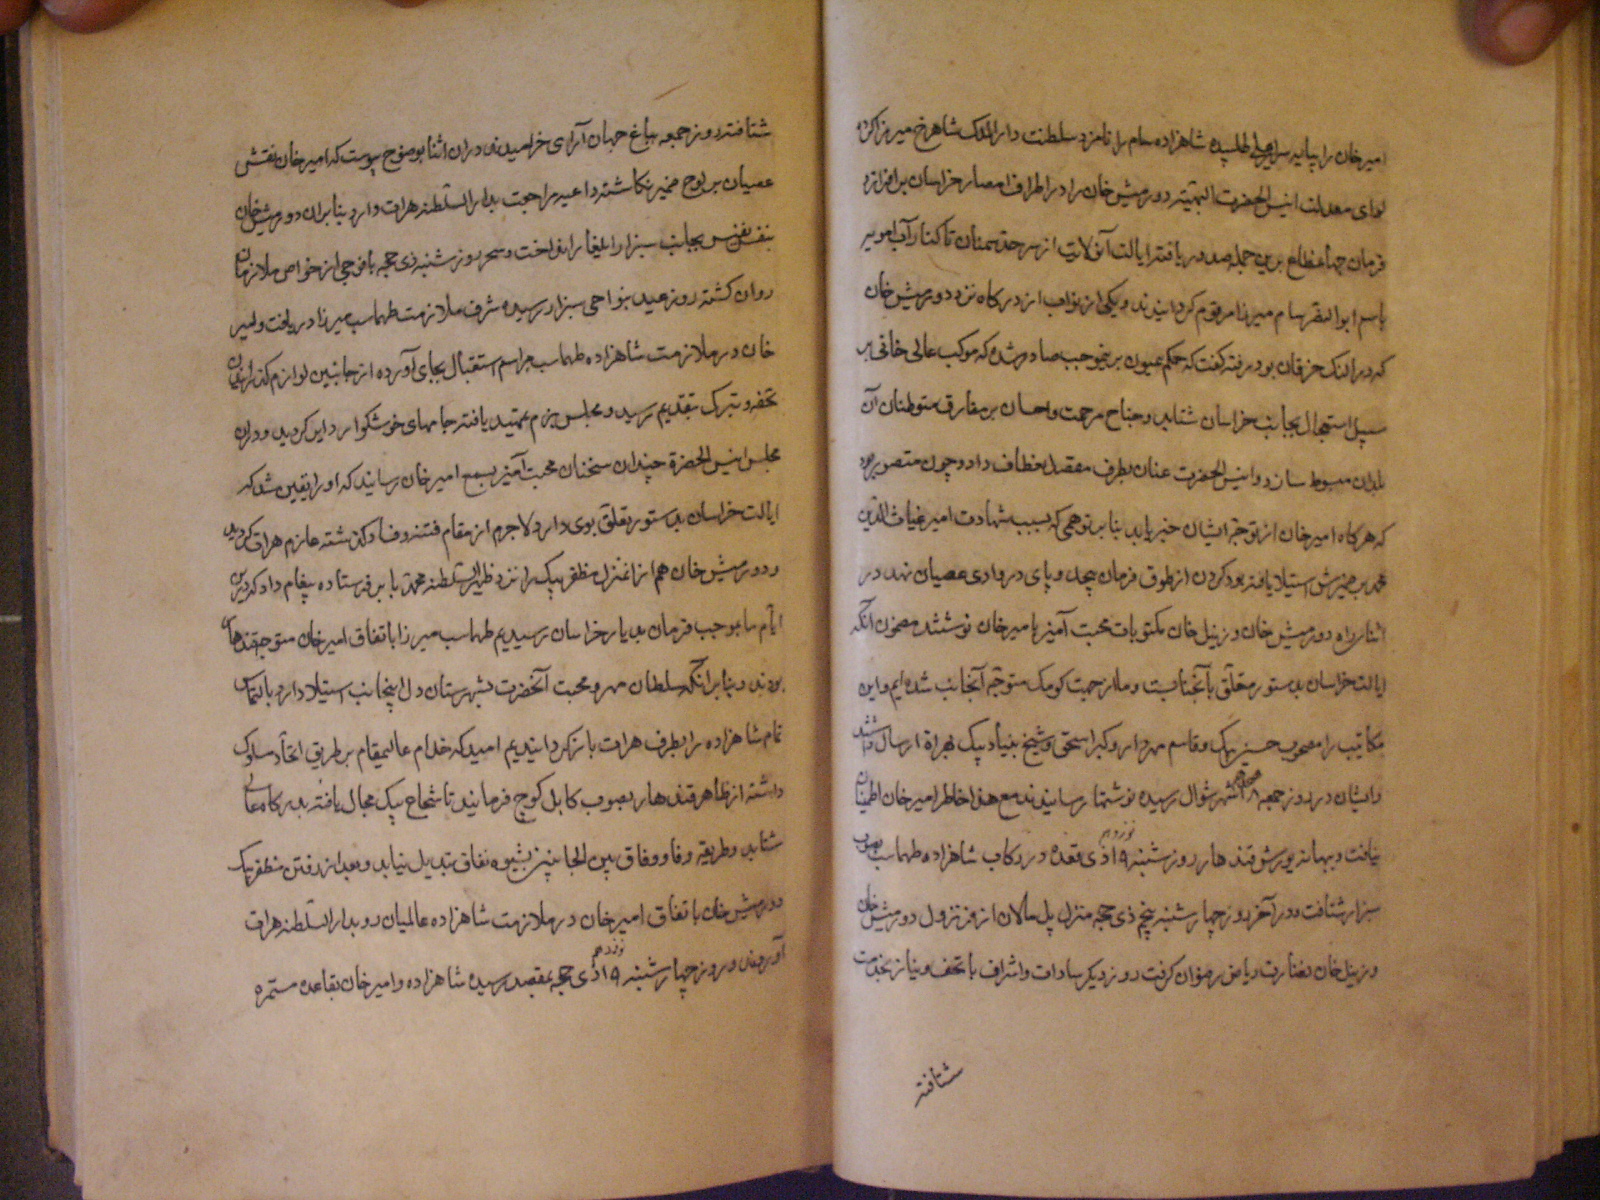 امیرخان را بپایه سریر اعلی طلبیده شاهزاده سام را نامزد سلطنت دار الملک شاهرخ میرزا کرده
لوای معدلت انیس الحضرت البهیته دورمیش خان را در اطراف امصار خراسان برافرازد
فرمان جهانمطاع برین جمله صدور یافته ایالت آن ولایت از سرحد سمنان تا کنار آب امویه
باسم ابو النصر سام میرزا مرقوم کردانیدند و یکی از نواب از درکاه نزد دورمیش خان
که در النک خرقان بود رفته کفت که حکم همیون برینموجب صادر شد که موکب عالی خانی بر
سبیل استعجال بجانب خراسان شتابد و جناح مرحمت و احسان بر مفارق متوطنان آن
بلدان مبسوط سازد و انیس الحضرت عنان بطرف مقصد انعطاف داد و چون متصور بود
که هرکاه امیرخان از توجه ایشان خبر یابد بنابر توهمی که بسبب شهادت امیر غیاث الدین
محمد بر ضمیرش استیلا یافته بود کردن از طوق فرمان پیچد و پای در وادی عصیان نهد در
اثنا راه دورمیش خان و زینل خان مکتوبات محبت آمیز بامیرخان نوشتند مضمون آنکه
ایالت خراسان بدستور متعلق بآنجنابست و ما از جهت کومک متوجه آنجانب شده ایم و این
مکاتیب را مصحوب حسن بیک و قاسم مهردار و کبراسحق و شیخ بنیاد بیک بهراة ارسال داشتند
و ایشان در روز جمعه ۱۸ شهر شوال رسیده نوشتها رسانیدند مع هذا خاطر امیرخان اطمینان
نیافت و ببهانه یورش قندهار روز شنبه ۱۹ ذی قعده در رکاب شاهزاده طهماسب بصوب
نوزدهم
سبزار شتافت و در آخر روز چهارشنبه پنجم ذی حجه منزل پل مالان از فر نزول دورمیش خان
و زینل خان نضارت ریاض رضوان کرفت روز دیکر سادات و اشراف با تحف و نیاز بخدمت
شتافته
شتافتند روز جمعه بباغ جهان آرای خرامیدند و در ان اثنا بوضوح پیوست که امیرخان نقش
عصیان بر لوح ضمیر نکاشته داعیه مراجعت بدار السلطنه هرات دارد بنابران دورمیش خان
بنفس نفیس بجانب سبزار ایلغار انداخت و سحر روز شنبه ذی حجه با فوجی از خواص ملازمان
روان کشته روز عید بنواحی سبزار رسیده شرف ملازمت طهماسب میرزا دریافت و امیر
خان در ملازمت شاهزاده طهماسب مراسم استقبال بجای آورده از جانبین لوازم کذرانیدن
تحفه و تبرک بتقدیم رسید و مجلس بزم تمهید یافته جامهای خوشکوار دایر کردید و دران
مجلس انیس الحضرة چندان سخنان محبت آمیز بسمع امیرخان رسانید که او را یقین شد که
ایالت خراسان بدستور تعلق بوی دارد لاجرم از مقام فتنه و فساد کذشته عازم هراة کردید
و دورمیش خان هم از انمنزل مظفر بیک را نزد ظهیر السلطنه محمد بابر فرستاده پیغام داد که درین
ایام ما بموجب فرمان بدیار خراسان رسیدیم طهماسب میرزا باتفاق امیرخان متوجه قندهار
بودند و بنابر انکه سلطان مهر و محبت آنحضرت بشهرستان دل اینجانب استیلا دارد بالتماس
تمام شاهزاده را بطرف هرات باز کردانیدیم امید که خدام عالیمقام بر طریق اتحاد سلوک
داشته از ظاهر قندهار بصوب کابل کوچ فرمایند تا شجاع بیک مجال یافته بدرکاه عالی
شتابد و طریقه وفا و وفاق بین الجانبین بشیوه نفاق تبدیل نیابد و بعد از رفتن مظفر بیک
دورمیش خان باتفاق امیرخان در ملازمت شاهزاده عالمیان رو بدار السلطنه هرات
نوزدهم
آوردند و روز چهارشنبه ۱۹ ذی حجه بمقصد رسیده شاهزاده و امیرخان بقاعده مستمره